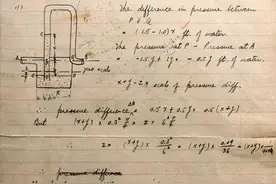 The difference in pressure between
P & Q
= (1.5 - 1.0) x ft. of water.
The pressure at P - Pressure at A
= -1.5y + 1y = -0.5y ft. of water.
x+y-z = scale of pressure diff.
∴ pressure difference = 0.5x + 0.5y = 0.5 (x+y)
But (x+y) × 0.3² π/4 = z × 6² π/4
∴ z = (x+y) × 0.3²/6² = (x+y) × 0.09/36 = (x+y) ×
∴ pressure difference